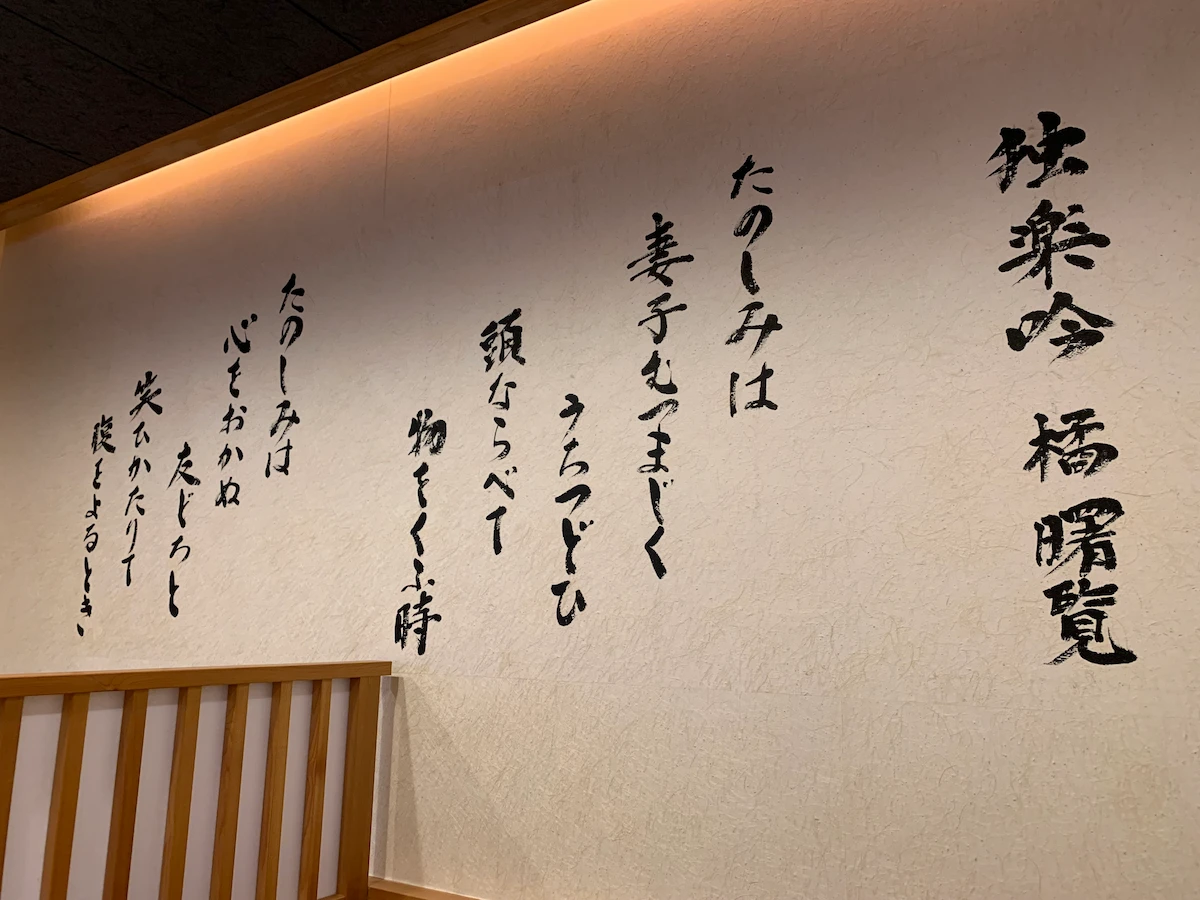 独楽吟 橘曙覧
たのしみは
妻子むつまじく
うちつどひ
頭ならべて
物をくふ時
たのしみは
心をおかぬ
友どちと
笑ひかたりて
腹をよるとき